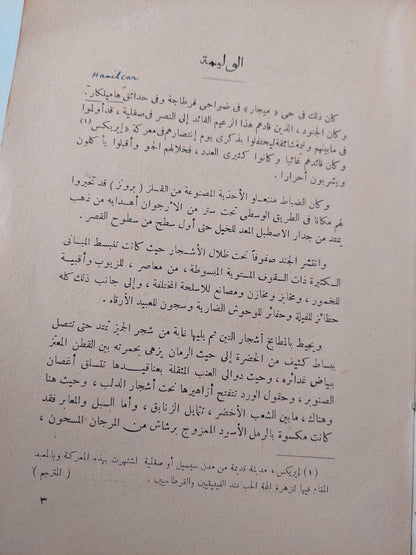 الوليمة
Hamilcar
كان ذلك فى حى « ميجار » فى ضواحى قرطاجة وفى حدائق هاميلكار .
وكان الجنود ، الذين قادهم هذا الزعيم القائد إلى النصر فى صقلية ، قد أولموا
فى مابينهم وليمة شائقة ليحتفلوا بذكرى يوم إنتصارهم فى معركة « إيريكس (١)
وكان قائدهم غائبا وكانوا كثيرى العدد ، فخلالهم الجو وأقبلوا يأكلون
ويشربون أحرارا .
وكان الضباط منتعلو الأحذية المصنوعة من الفلز ( برونز ) قد تخيروا
لهم مكانا فى الطريق الوسطى تحت ستر من الارجوان أهدابه من ذهب
يمتد من جدار الاصطبل المعد للخيل حتى أول سطح من سطوح القصر .
وانتشر الجند صفوفاً تحت ظلال الأشجار حيث كانت تنبسط المبانى
الكثيرة ذات السقوف المستوية المبسوطة ، من معاصر ، للزيوب وأقبية
للخمور ، ومخابز ومخازن ومصانع للاسلحة المختلفة ، وإلى جانب ذلك كله
حظائر للفيلة وحفائر للوحوش الضارية وسجون للعبيد الأرقاء .
ويحيط بالمطابخ أشجار التين ثم يليها غابة من شجر الجميز تمتد حتى تتصل
ببساط كثيف من الخضرة إلى حيث الرمان يزهى بحمرته بين القطن المعتز
ببياض غدائره ، وحيث دوالى العنب المثقلة بعناقيدها تتسلق أغصان
الصنوبر ، وحقول الورد تتفتح أزاهيرها تحت أشجار الدلب ، وحيث هنا
وهناك ، مابين الشعب الأخضر ، تتمايل الزنابق ، وأما السبل والمعابر فقد
كانت مكسوة بالرمل الأسود الممزوج برشاش من المرجان المسحون ،
(١) إيريكس ، مدينة قديمة من مدن سيسيل أو صقلية اشتهرت بهذه المعركة وبالمعبد
المقام فيها للزهرة الهة الحب عند الفينيقيين والقرطاجيين . ( المترجم )
٣